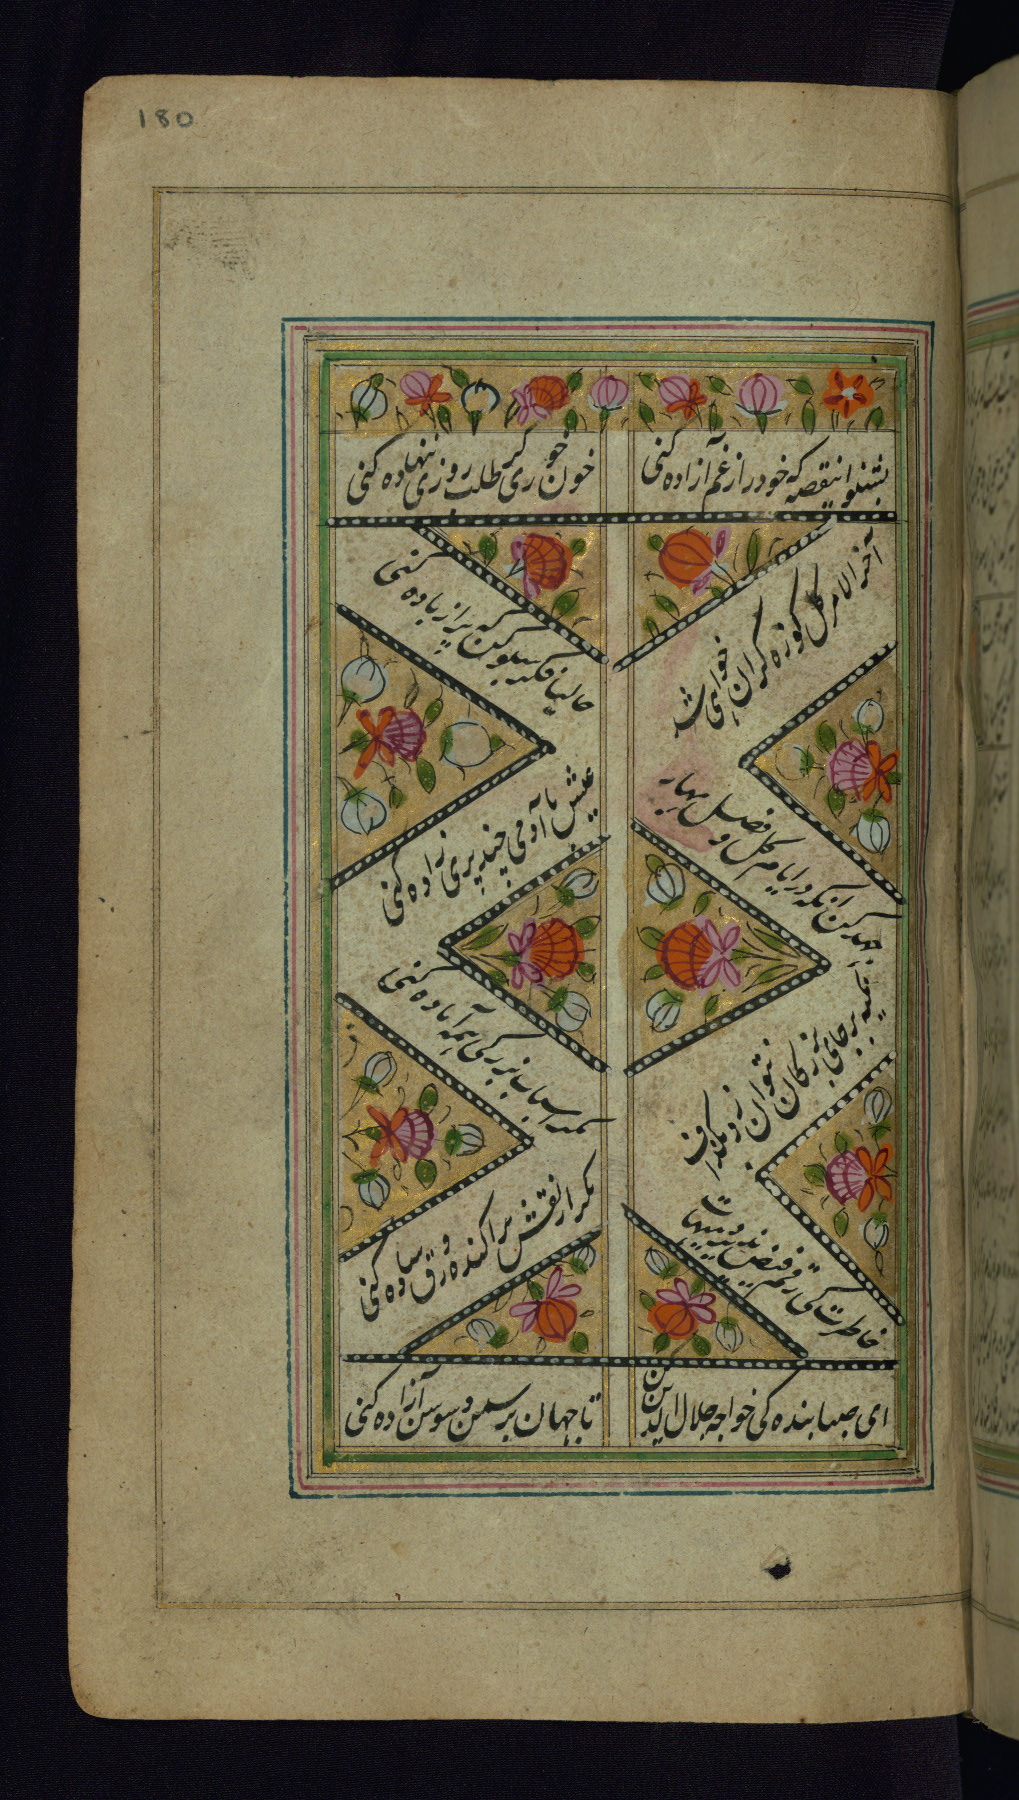 180
بشنو اینقصه که خود را ز غم آزاده کنی
خون خوری گر طلب روزی ننهاده کنی
آخر الامر گل کوزه گران خواهی شد
حالیا فکر سبو کن که پر از باده کنی
جهد کن انکه در ایام گل و فصل بهار
عیش با آدمی چند پری زاده کنی
تکیه بر جای بزرگان نتوان زد بگزاف
مگر اسباب بزرگی همه آماده کنی
خاطرت کی رقم فیض پذیرد هیهات
مگر از نقش پراکنده ورق ساده کنی
ای صبا بنده کی خواجه جلال الدین کن
تا جهان پر سمن و سوسن آزاده کنی